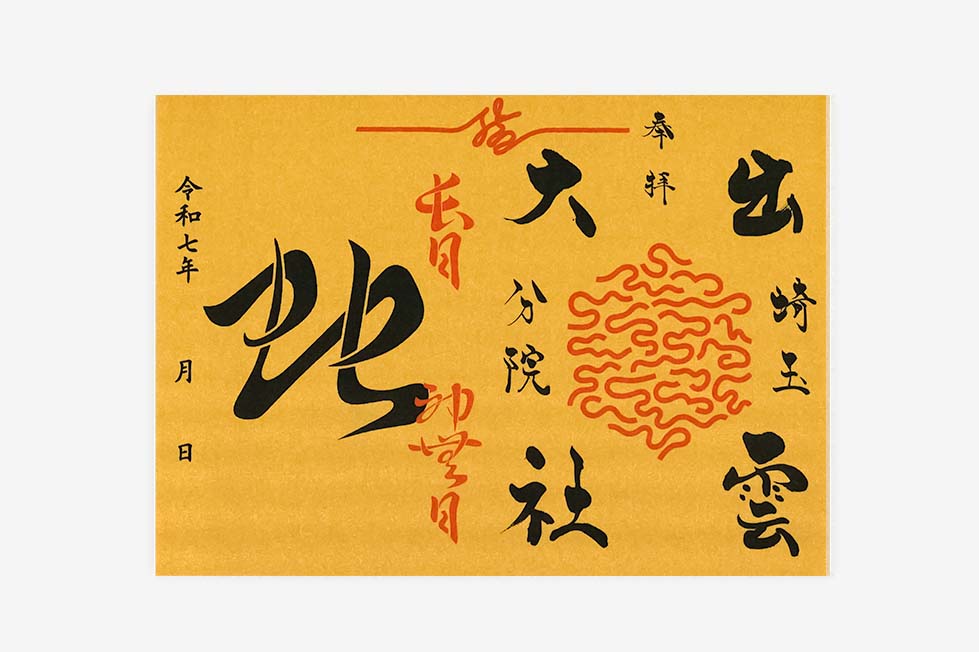 出埼玉雲
奉拝
大分院社
結
長月
神無月
地
令和七年 月 日